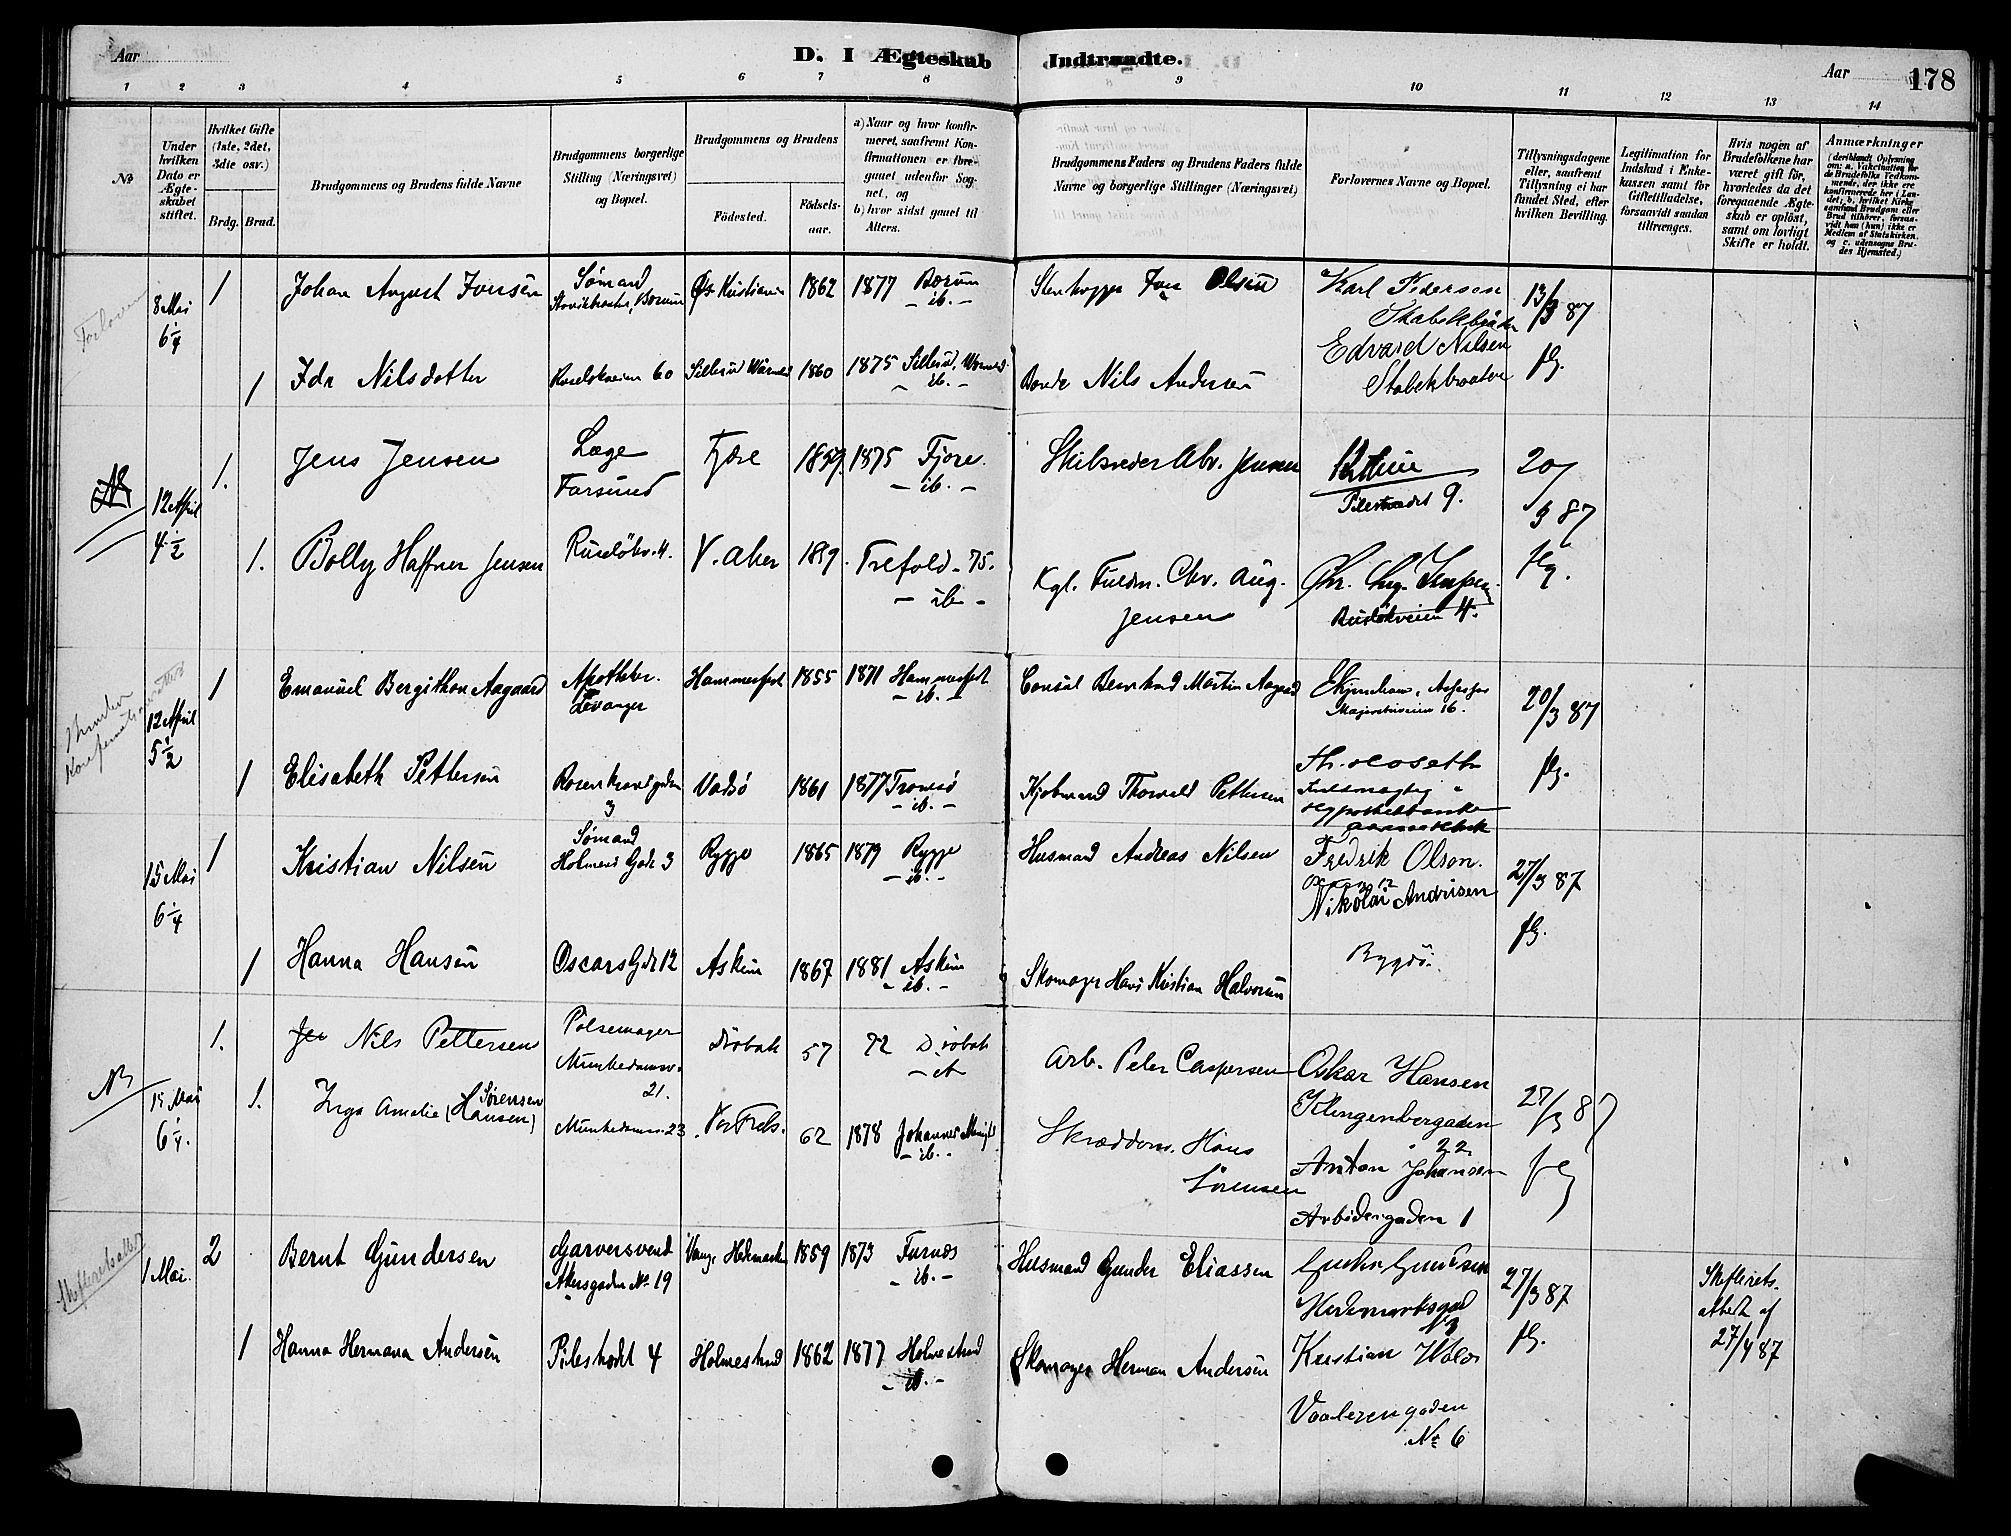 Aar
D. I Ægteskab Indtraadte.
Aar
178
1 2 3 4 5 6 7 8 9 10 11 12 13 14
No
Under hvilken Dato er Ægteskabet stiftet.
Hvilket Gifte (1ste, 2det, 3die osv.)
Brdg. Brud.
Brudgommens og Brudens fulde Navne
Brudgommens borgerlige Stilling (Næringsvei) og Bopæl.
Brudgommens og Brudens
Födested.
Födsels-aar.
a) Naar og hvor konfirmeret, saafremt Konfirmationen er foregaaet udenfor Sognet, og
b) hvor sidst gaaet til Alters.
Brudgommens Faders og Brudens Faders fulde Navne og borgerlige Stillinger (Næringsvei)
Forlovernes Navne og Bopæl.
Tillysningsdagene eller, saafremt Tillysning ei har fundet Sted, efter hvilken Bevilling.
Legitimation for Indskud i Enkekassen samt for Giftetilladelse, forsaavidt saadan tiltrænges.
Hvis nogen af Brudefolkene har været gift för, hvorledes da det foregaaende Ægteskab er oplöst, samt om lovligt Skifte er holdt.
Anmærkninger
8 Mai 6 1/4
1 Johan August Iversen
Sømand
1862 1877 Bærum
- ib. -
Olsen
Karl Pedersen
13/3 87
1 Ida Nilsdotter
60
1860 1875
- ib. -
Nils Andersen
Edvard Nilsen
flg.
12 April 4 1/2
1. Jens Jensen
Læge
Farsund
Fjære 1859 1875 Fjære.
- ib. -
Skibsreder Abr. Jensen
Pilestrædet 9.
20/3 87
1. Bolly Haffner Jensen
Ruseløkv. 4.
V. Aker
Trefold. 75.
- ib -
Kgl. Fuldm. Chr. Aug.
Jensen
Ruseløkveien 4.
flg.
12 April 5 1/2
1 Emanuel Bergithon Aagaard
Apotheker.
Levanger
Hammerfest 1855 1871 Hammerfest
- ib. -
Consul Bernhard Martin Aagaard
16.
20/3 87
1 Elisabeth Pettersen
Rosenkrantzgaden
3
Vadsø 1861 1877 Tromsø
- ib. -
Kjøbmand Thorvald Pettersen
Th. Roseth
Fuldmægtig i
Hypothekbanken
flg.
15 Mai 6 1/4
1 Kristian Nilsen
Sømand
Holmens Gade 3
Rygge 1865 1879 Rygge
- ib. -
Husmand Andreas Nilsen
Fredrik Olson.
Nikolai Andrisen
27/3 87
1 Hanna Hansen
Oscars Gade 12
Askim 1867 1881 Askim
- ib. -
Skomager Hans Kristian Halvorsen
Bygdö.
flg.
NB
15 Mai 6 1/4.
1. Nils Pettersen
Pølsemager
Munkedamsv.
21.
Drøbak 57 72 Drøbak
- ib
Arb. Peter Caspersen
Oskar Hansen
Klingenberggaden
22
27/3 87
1. Inga Amalie (Hansen) Sørensen
Munkedamsv. 23
Vor Frels. 62 1878 Johannes Menigh.
- ib. -
Skræddern. Hans
Sörensen
Anton Johansen
Arbidergaden 1
flg
Skifteattest
1 Mai.
2 Bernt Gundersen
Garversvend
Akersgaden No 19
Vang, Hedemarken 1859 1873 Furnæs
- ib. -
Husmand Gunder Eliassen
27/3 87
Skifterets-
attest af
27/4 87
1 Hanna Hermana Andersen
Pilestrædet 4
Holmestrand 1862 1877 Holmestrand
- ib. -
Skomager Herman Andersen
Kristian
Vaalerengaden
No 6
flg.